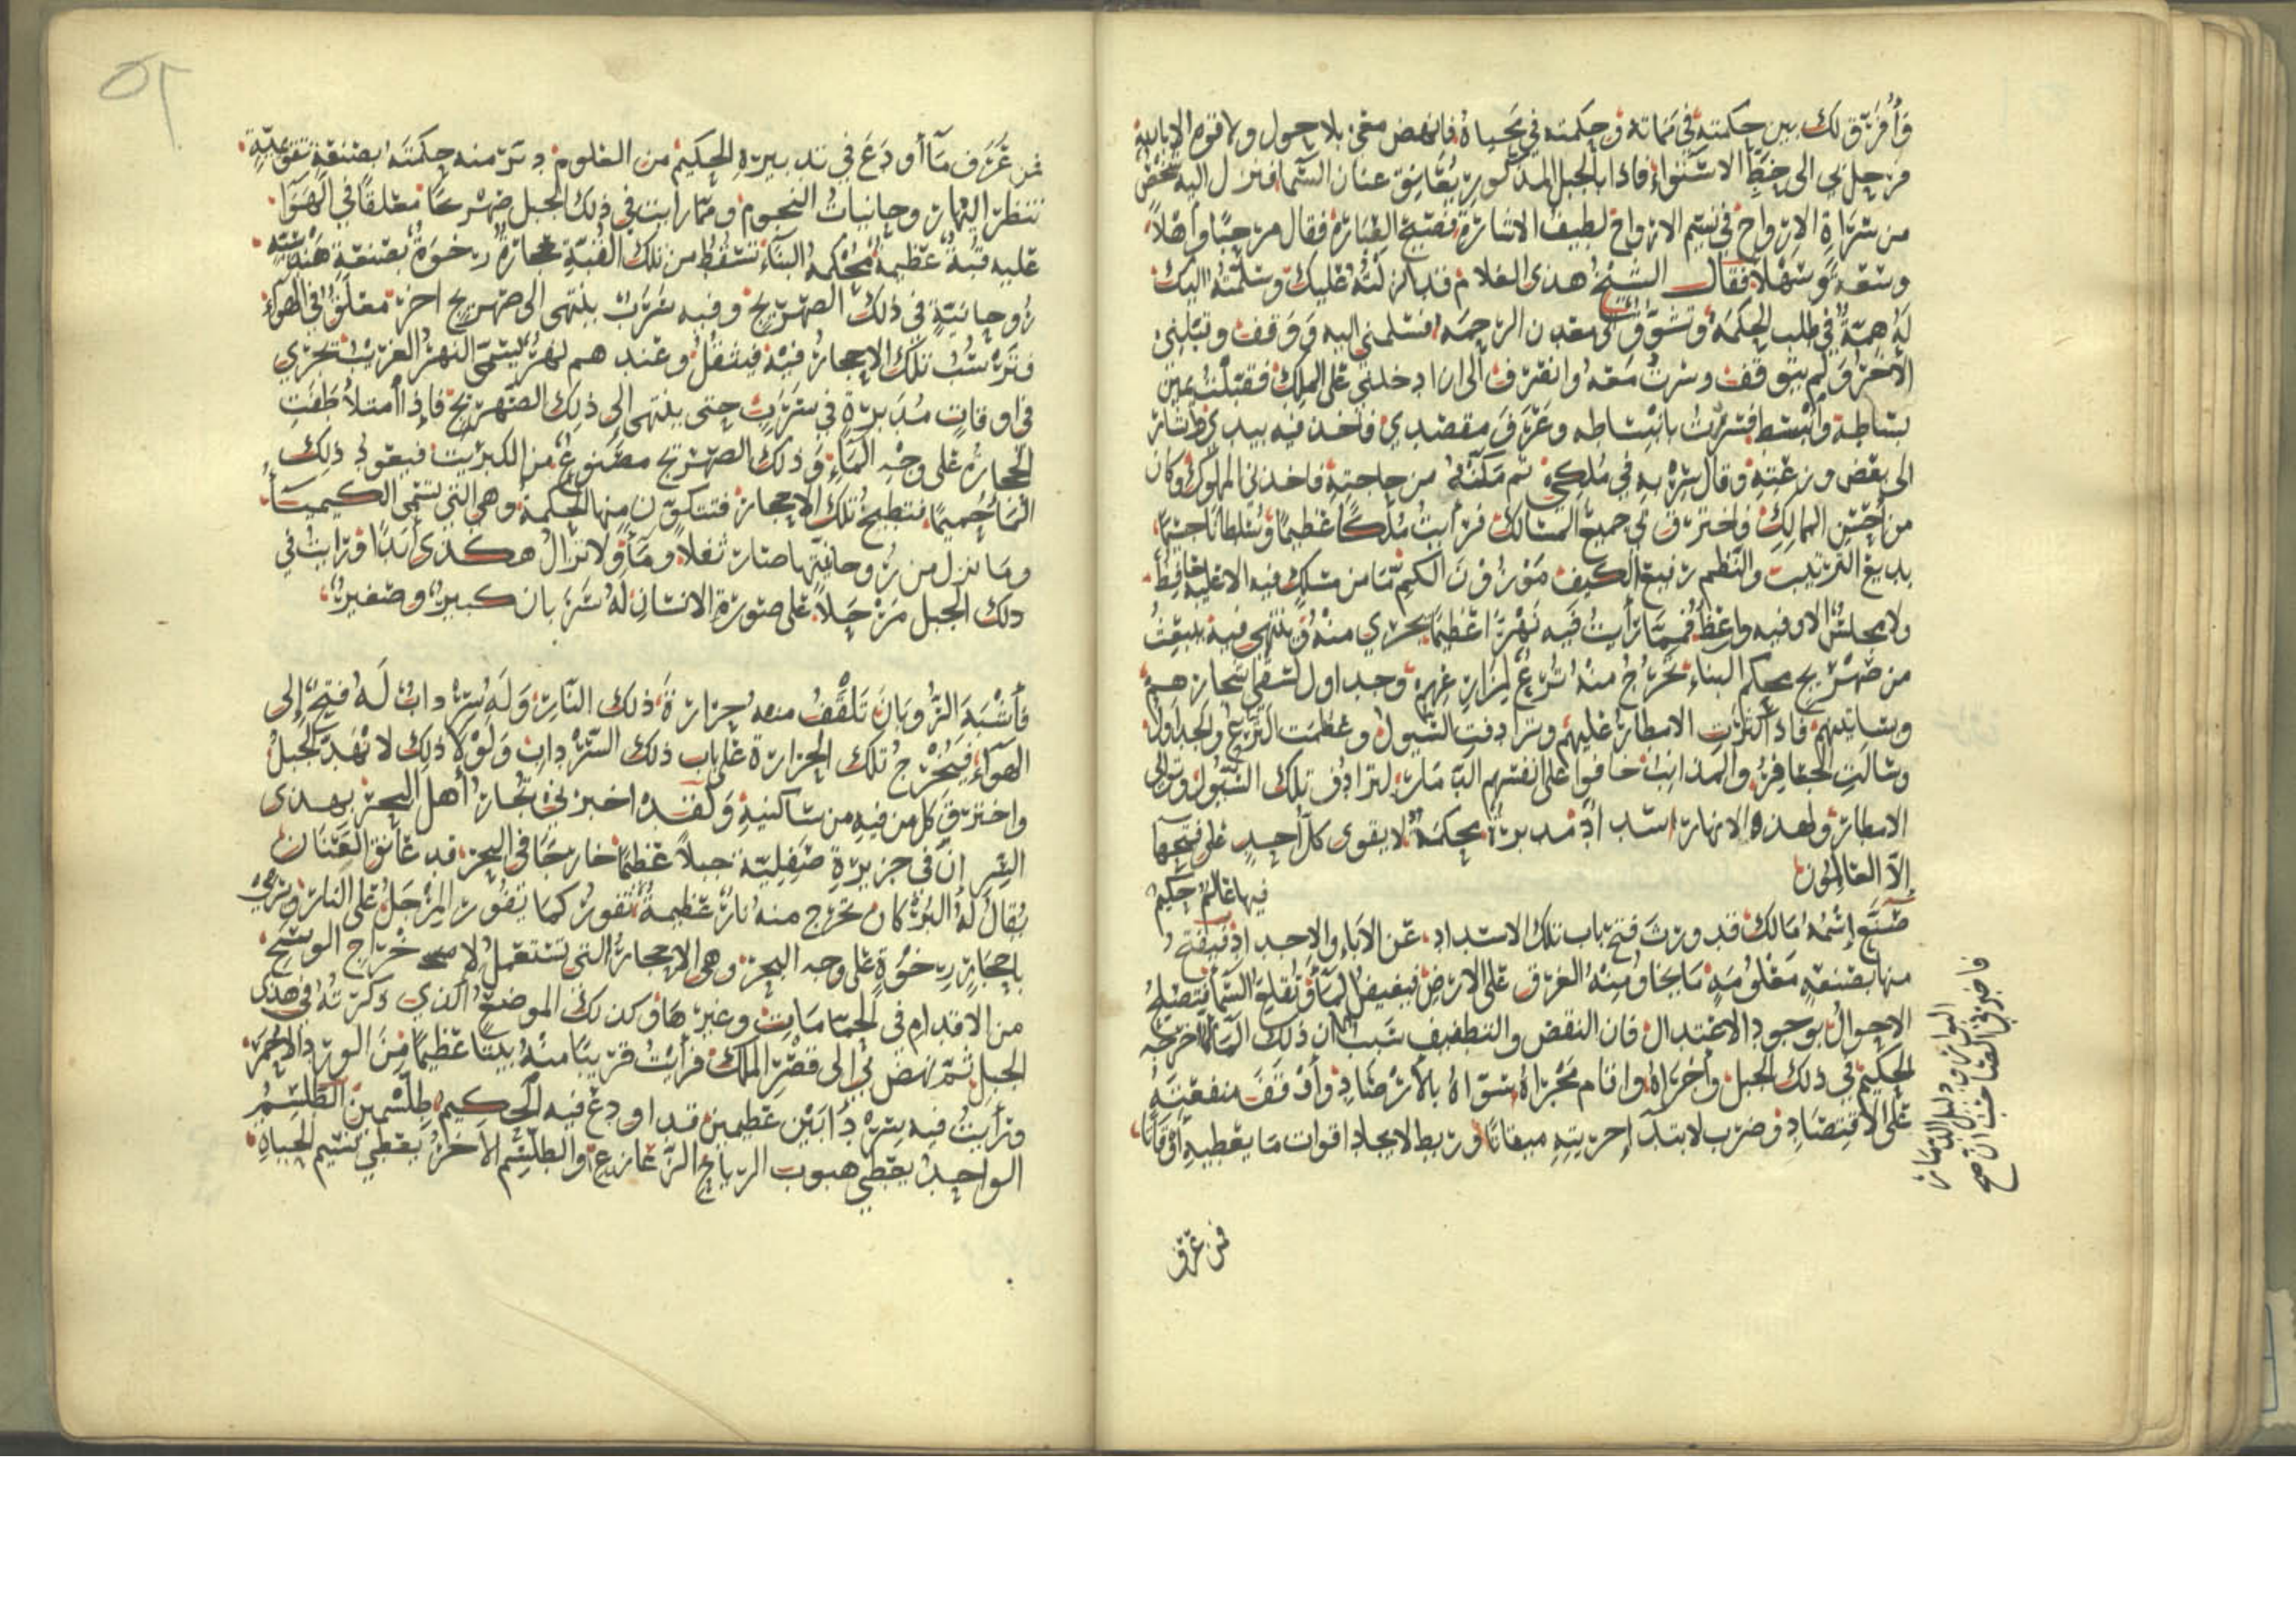 وَأُفَرِّق لك بين حكمته في مماته وحكمته في مَحياه فانهض معي بلا حول ولا قوه الا بالله
فرحل بي الى خط الاستواء فاذا بالجبل المذكور يعانق عنان السما فنزل اليه شخص
من سَرَاةِ الارواح في نسيم الارواح لطيف الاشارة فصيح العبارة فقال مرحبًا وأهلاً
وسعة وسهلاً فقال الشيخ هذى الغلام قد انزلته عليك وسلمته اليك
له همة في طلب الحكمة وتشوق الى معدن الرحمه فسلمني اليه ووقف وقبلني
الاخر ولم يتوقف وسرت معه وانصرف الى ان ادخلني على الملك فقبلت يمين
بساطه وانبسط فسررت بانبساطه وعَرَفَ مقصدي فاخذ فيه بيدي واشار
الى بعض وزعته وقال سِرْ به في مُلكي ثم مكنه من حاجته فاخذني المملوك وكان
من أحسن الممالك واخترق بي جميع المسالك فرأيت مُلكًا عظيمًا وسُلطانًا جسيمًا
بديع الترتيب والنظم رفيع الكيف موزون الكم ما من مسلك فيه الا عليه حافظ
ولا مجلس الا وفيه واعظ فمما رأيت فيه نَهْرًا عظيمًا يجري منه وينتهي فيه ينبعث
من صهريج محكم البناء تخرج منه تُرَع لمزارعهم وجداول لسقي اشجارهم
وبساتينهم فاذا كثرت الامطار عليهم وترادفت السيول وعظمت الترع والجداول
وسالت الجعافر والمذانب خافوا على انفسهم الدمار لترادف تلك السيول وتوالي
الامطار ولهذه الانهار اسداد مدبرة بحكمة لا يقوى كل أحد على فتحها
إلا العالمون
فيها عالم حكيم
صَنَع اسمه مالك قد ورث فتح باب تلك الاسداد عن الآباء والاجداد فيفتح
منها بصنعة معلومة ما يخاف منه الغرق على الارض فيفيض الماء وتقلع السما فتصلح
الاحوال بوجود الاعتدال فان النقص والتطفيف سببان ذلك الماء اخرجه
الحكيم في ذلك الجبل وأجراه واقام مجراه وسواه بالأرصاد وأوقف منفعته
على الاقتصاد وضرب لابتداء إجريته ميقاتًا وربط لايجاد اقوات ما يعطيه أوقاتًا
فاخبرني الصاحب ان صح
البوار ودليل الدمار
فمن عرف
٥٢
فمن عَرَف ما أودع في تدبيره الحكيم من العلوم دَبَّر منه حكمته بصنعة تفوّقية
تنظر اليها روحانيات النجوم ومما رايت في ذلك الجبل صهريجًا معلقًا في الهوا
عليه قبة عظيمة محكمه البناء تسقط من تلك القبة حجارة رخوة بصنعة هندسية
روحانية في ذلك الصهريج وفيه سَرَب ينتهي الى صهريج اخر معلق في الهواء
فترسب تلك الاحجار فيه فيثقل وعندهم نهر يسمى النهر الغريب تجري
في اوقات مُدَبرة في سَرَب حتى ينتهي الى ذلك الصهريج فاذا امتلأ طفت
الحجارة على وجه الماء وذلك الصهريج مصنوع من الكبريت فيعود ذلك
الماء حميمًا فتطبخ تلك الاحجار فتتكون منها الحكمة وهي التي تسمى الكيمياء
وما نزل من روحانيتها صار ثفلاً وماء ولا تزال هكذى أبدًا ورايت في
ذلك الجبل مَرْجلاً على صورة الانسان له سَرَبان كبير وصغير
فأشبه الزوبان تلقف منه حرارة ذلك النار وله سرداب له فتح إلى
الهواء فتخرج تلك الحرارة على باب ذلك السرداب ولولا ذلك لانهد الجبل
واحترق كل من فيه من ساكنيه ولقد اخبرني تجار أهل البحر بهذى
السر ان في جزيرة صقلية جبلاً عظيمًا خارجًا في البحر قد عانق العنان
يقال له البره كان تخرج منه نار عظيمة تفور كما يفور المرجل على النار وترمي
باحجار رخوة على وجه البحر وهي الاحجار التي تستعمل لاخراج الوسخ
من الاقدام في الحمامات وغيرها وكذلك الموضع الذي ذكرته في هذى
الجبل ثم نهض بي الى قصر الملك فرأيت قريبًا منه بيتًا عظيمًا من الورد الاحمر
ورأيت فيه سردابين عظيمين قد اودع فيه الحكيم طلسمين الطلسم
الواحد يعطي هبوب الرياح الزعازع والطلسم الاخر يعطي نسيم الحياه